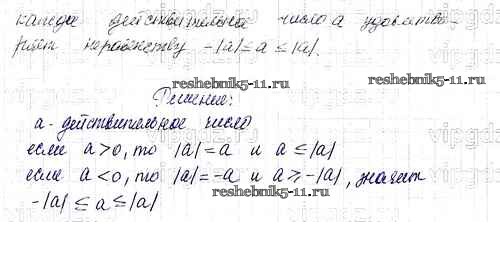 каждое действительное число a удовлетво-
ряет неравенству -|a| ≤ a ≤ |a|.
reshebnik5-11.ru
reshebnik5-11.ru
Решение:
a - действительное число
если a>0, то |a|=a и a≤|a|
если a<0, то |a|=-a и a≥-|a|, значит
reshebnik5-11.ru
-|a| ≤ a ≤ |a|